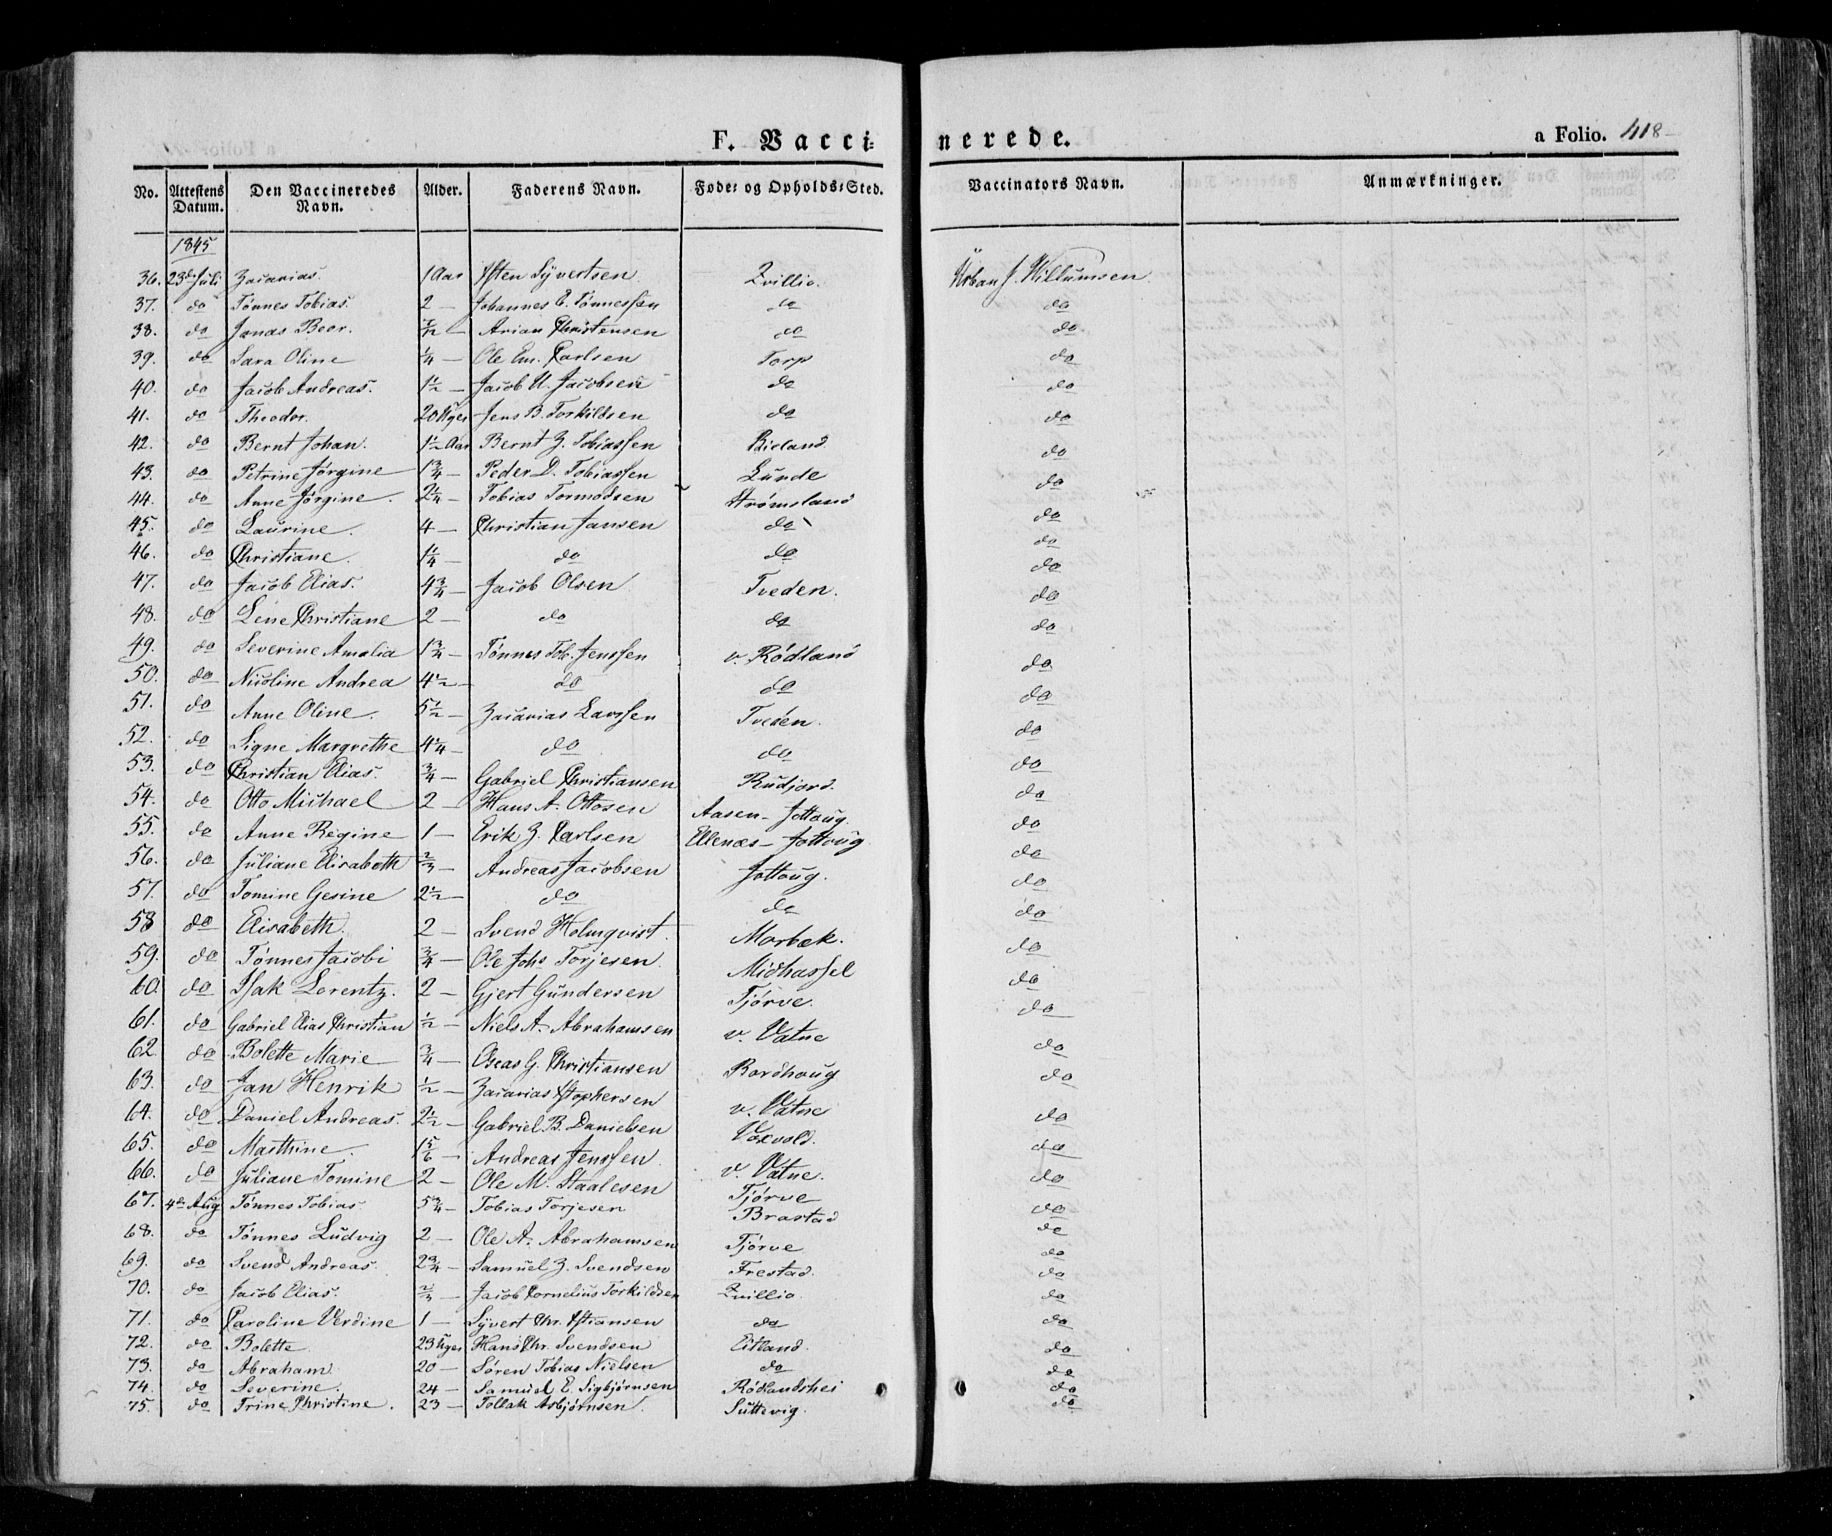 F. Vaccinerede. a Folio. 418
No. Attestens Datum. Den Vaccineredes Navn. Alder. Faderens Navn. Føde- og Opholds-Sted. Vaccinators Navn. Anmærkninger.
1845
36. 23de Juli Zacarias. 1 Aar Østen Syvertsen Urban J. Willumsen
37. do Tønnes Tobias. 2 — Johannes E. Tønnessen do do
38. do Jonas Beer. — Arian Christensen do do
39. do Sara Oline ¼ — Ole Em. Carlsen Torp do
40. do Jacob Andreas. 1½ — Jacob U. Jacobsen do do
41. do Theodor. 20 Uger Jens B. Torkildsen do do
42. do Bernt Johan. 1½ Aar Bernt Z. Tobiassen Birland do
43. do Petrine Jørgine 1¾ — Peder D. Tobiassen Lunde do
44. do Anne Jørgine. 2¼ — Tobias Tormodsen Strømsland do
45. do Laurine. 4 — Christian Jansen do do
46. do Christiane. 1¼ — do do do
47. do Jacob Elias. 4¾ — Jacob Olsen Tveden. do
48. do Lene Christiane 2 — do do do
49. do Severine Amalia 1¾ — Tønnes Tob. Jenssen v. Rødland do
50. do Nicoline Andrea 4½ — do do do
51. do Anne Oline. 5½ — Zacarias Larssen Tveden. do
52. do Signe Margrethe 4¼ — do do do
53. do Christian Elias. ¾ — Gabriel Christiansen Rudjord. do
54. do Otto Michael 2 — Hans A. Ottosen Aasen - Jottoug. do
55. do Anne Regine 1 — Erik Z. Carlsen Ellenæs - Jottoug do
56. do Juliane Elisabeth ⅔ — Andreas Jacobsen Jottoug. do
57. do Tomine Gesine 2½ — do do do
58 do Elisabeth. 2 — Svend Holmqvist. Marbæk. do
59. do Tønnes Jacobi ¾ — Ole Johs Torjesen Midhassel do
60. do Isak Lorentz. 2 — Gjert Gundersen Tjørve. do
61. do Gabriel Elias Christian ½ — Niels A. Abrahamsen v. Vatne do
62. do Bolette Marie ¾ — Oseas G. Christiansen Bordhoug do
63. do Jan Henrik ½ — Zacarias Stophersen v. Vatne do
64. do Daniel Andreas. 2½ — Gabriel B. Danielsen Voxvold. do
65. do Marthine. 1⅚ Andreas Jenssen v. Vatne. do
66. do Juliane Tomine 2 — Ole M. Staalesen Tjørve do
67. 4de Aug Tønnes Tobias 5¾ — Tobias Torjesen Brastad do
68. do Tønnes Ludvig 2 — Ole A. Abrahamsen Tjørve do
69. do Svend Andreas. 2¾ — Samuel Z. Svendsen Frestad. do
70. do Jacob Elias. ⅔ — Jacob Cornelius Torkildsen do
71. do Caroline Verdine 1 — Syvert Chr. Østiansen do do
72. do Bolette. 23 Uger Hans Chr. Svendsen Eitland. do
73. do Abraham 20 — Søren Tobias Nielsen do do
74. do Severine 24 — Samuel E. Sigbjørnsen Rødlandshei do
75. do Trine Christine. 23 — Tollak Asbjørnsen Suttevig. do